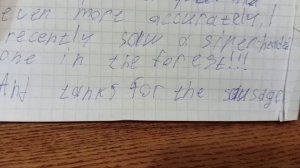 even more accurately, I
recently saw a superheade
one in the forest!!!
And tanks for the sausage